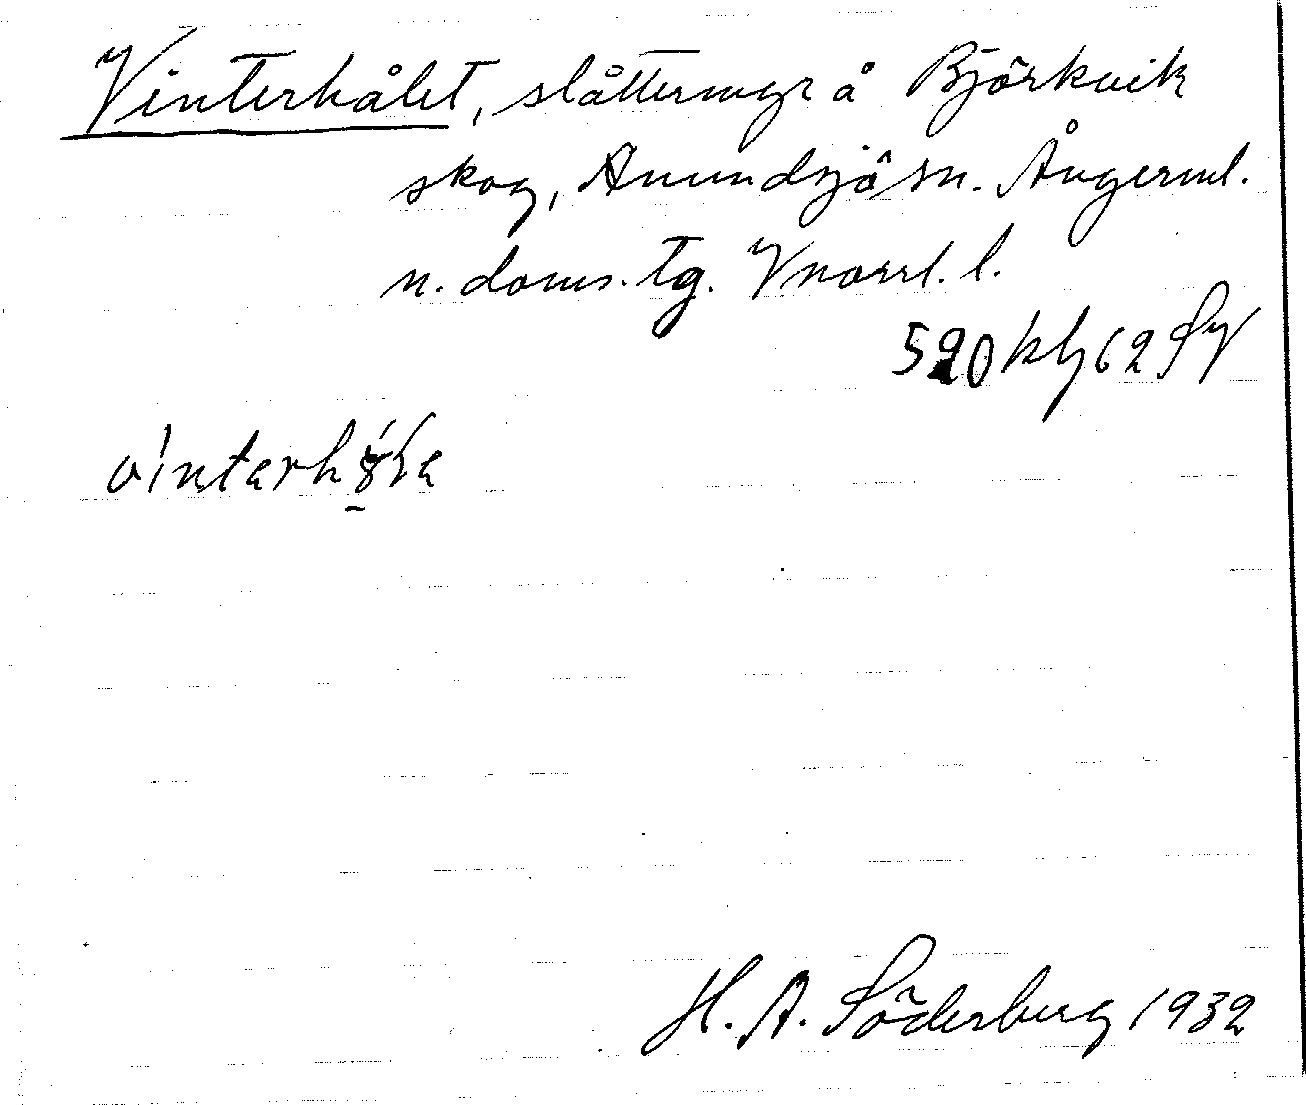 Vinterhålet, slåttermyr å Björkvik
skog, Anundsjö sn. Ångerml.
n. doms. tg. Vnorrl. l.
520 kbg 62 SV
H. A. Söderberg 1932